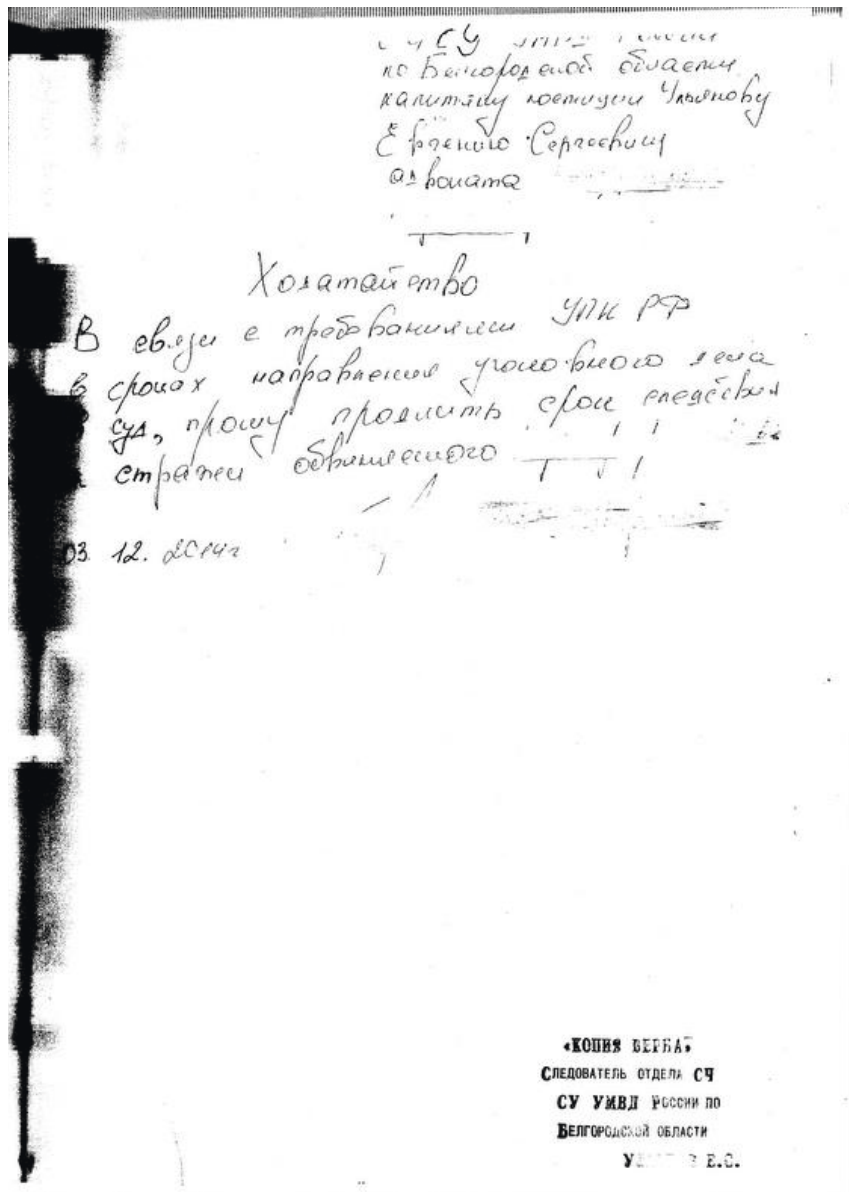 СЧ СУ УМВД России
по Белгородской области
капитану юстиции Ульянову
Евгению Сергеевичу
адвоката
Ходатайство
В связи с требованиями УПК РФ
в сроках направления уголовного дела
суд, прошу продлить срок следствия
стражи обвиняемого
03. 12. 2014г
«КОПИЯ ВЕРНА»
СЛЕДОВАТЕЛЬ ОТДЕЛА СЧ
СУ УМВД РОССИИ ПО
БЕЛГОРОДСКОЙ ОБЛАСТИ
Е.С.